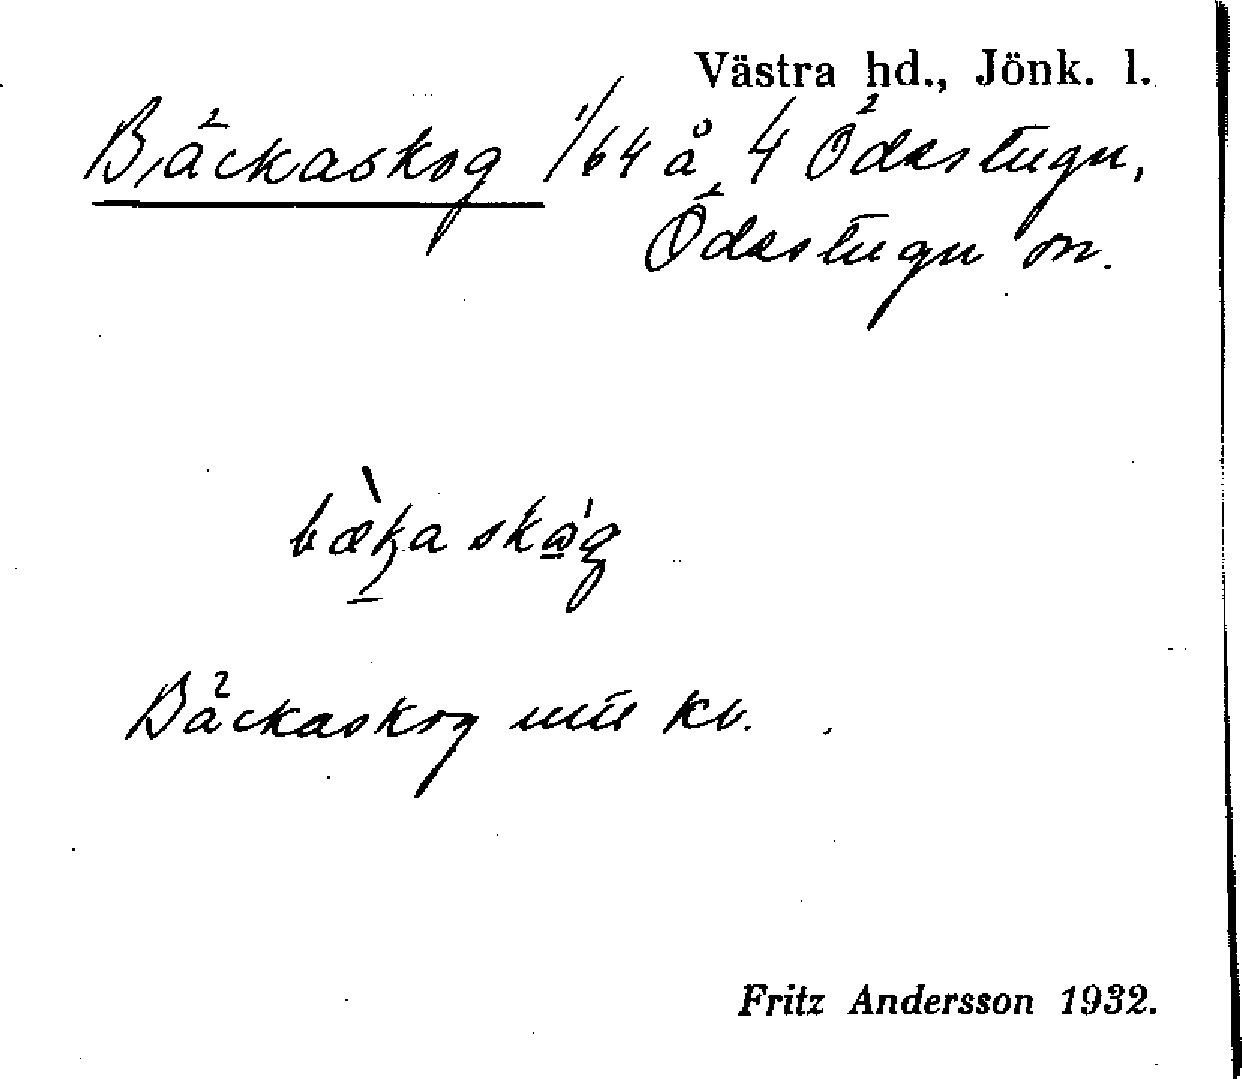 Västra hd., Jönk. l.
Bäckaskog 1/64 å 4 Ödestugu,
Ödestugu sn.
bæ̀ka skɷ́g
Bäckaskog
Fritz Andersson 1932.